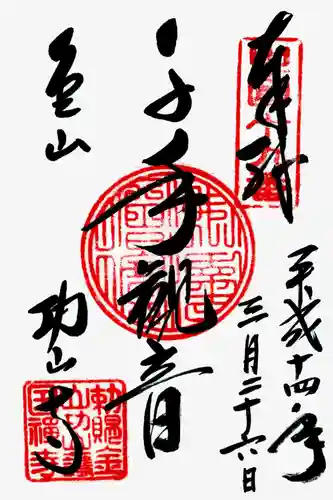 奉拝
平成十四年
三月二十六日
千手觀音
金山
功山寺
勅賜金
山功山護
国禅寺